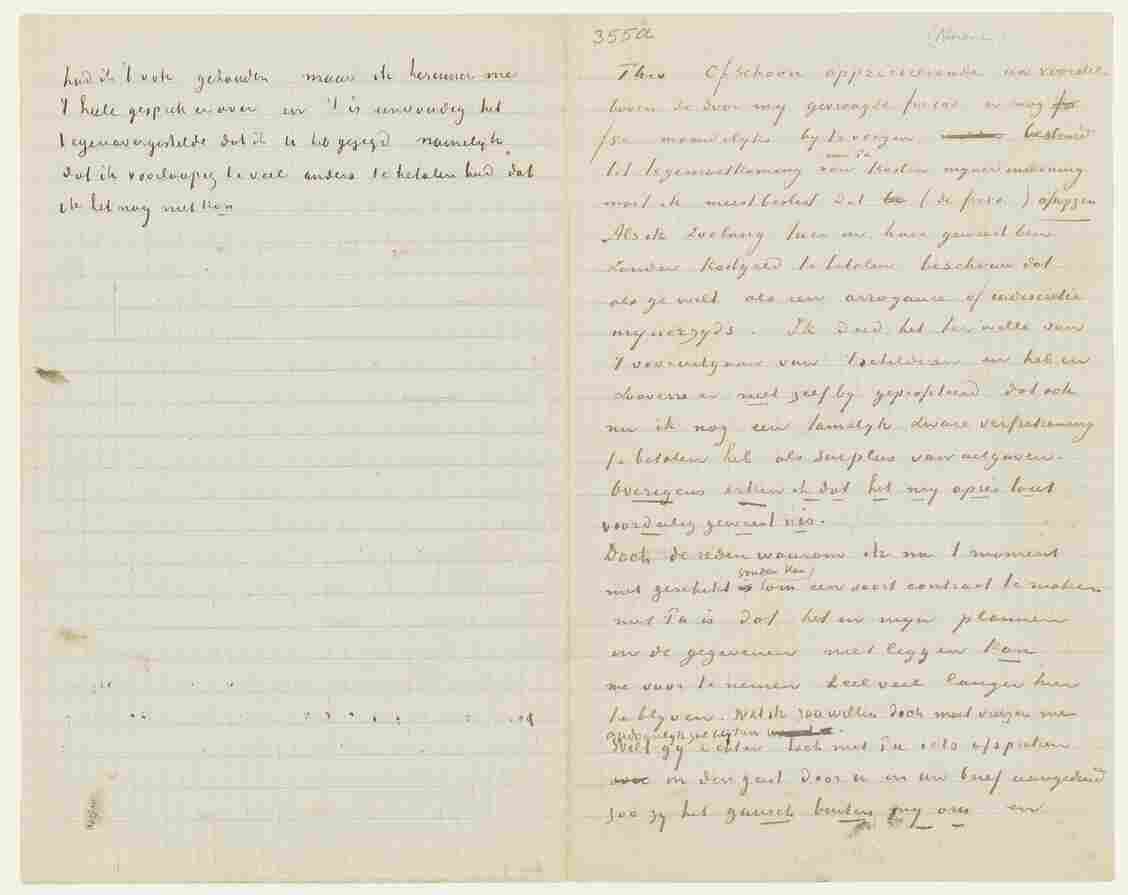 had ik 't ook gehouden maar ik herinner me
't heele gesprek er over en 't is eenvoudig het
tegenovergestelde dat ik u heb gezegd namelyk
dat ik voorloopig te veel anders te betalen had dat
ik het nog niet kon
355a
(Nuenen)
Theo Ofschoon apprecieerende uw voorstel
boven de door my gevraagde er nog
maandelyks by te voegen bestemd
aan Pa
tot tegemoetkoming van kosten myner inwoning
moet ik meest beslist dat (de ) afwyzen
Als ik zoolang hier in huis geweest ben
zonder kostgeld te betalen beschouw dat
als ge wilt als een arrogance of indiscretie
mynerzyds. Ik deed het ter wille van
't vooruitgaan van 't schilderen en heb er
zooverre er niet zelf by geprofiteerd dat ook
nu ik nog een tamelyk zware verfrekening
te betalen heb als surplus van uitgaven.
Overigens erken ik dat het my après tout
voordeelig geweest is.
Doch de reden waarom ik nu 't moment
zouden kan
niet geschikt om een soort contract te maken
met Pa is dat het in myn plannen
en de gegevenen niet leggen kan
me voor te nemen heel veel langer hier
te blyven. Wat ik zou willen doch moet
Wilt gy echter toch met Pa iets afspreken
in den geest door u in uw brief aangeduid
zoo zy het geheel buiten my om en